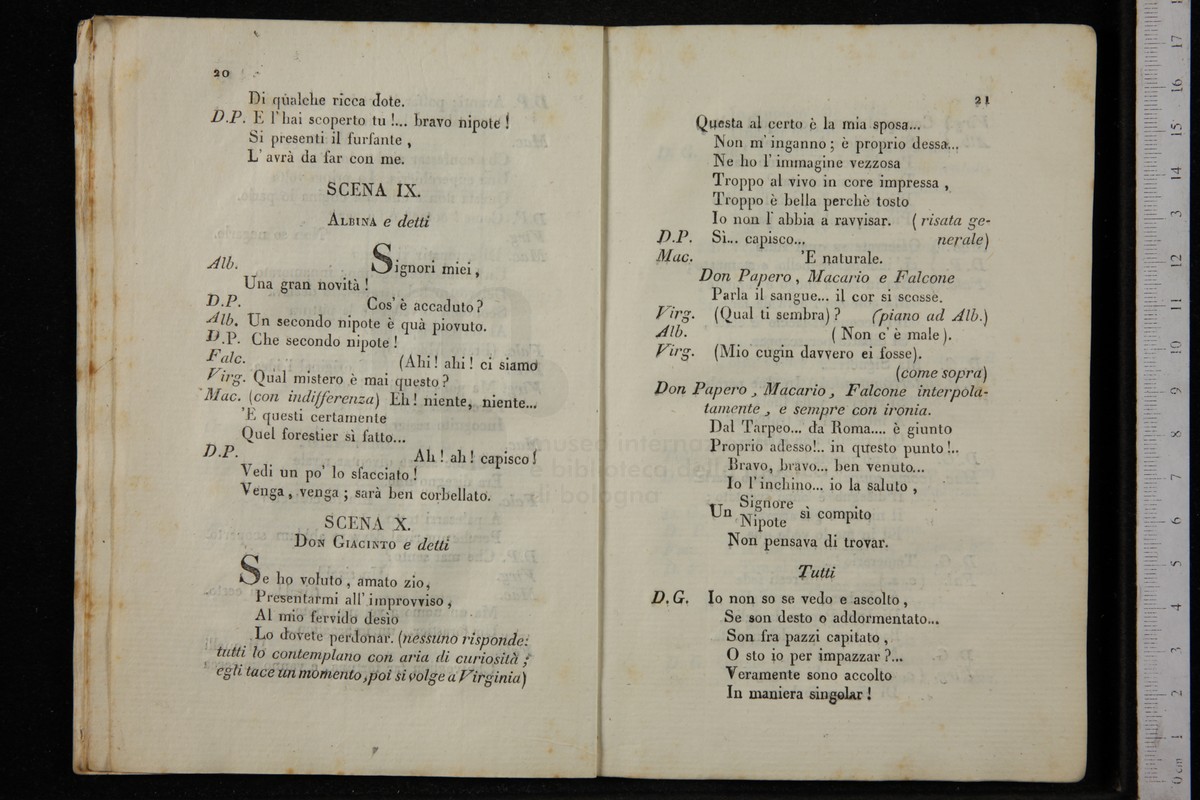 20
Di qualche ricca dote.
D.P. E l'hai scoperto tu !... bravo nipote !
Si presenti il furfante ,
L' avrà da far con me.
SCENA IX.
ALBINA e detti
Alb. Signori miei ,
Una gran novità !
D.P. Cos' è accaduto ?
Alb. Un secondo nipote è quà piovuto.
D.P. Che secondo nipote !
Falc. (Ahi ! ahi ! ci siamo
Virg. Qual mistero è mai questo ?
Mac. (con indifferenza) Eh ! niente, niente...
'E questi certamente
Quel forestier sì fatto...
D.P. Ah ! ah ! capisco !
Vedi un po' lo sfacciato !
Venga , venga ; sarà ben corbellato.
SCENA X.
DON GIACINTO e detti
Se ho voluto , amato zio,
Presentarmi all' improvviso ,
Al mio fervido desìo
Lo dovete perdonar. (nessuno risponde:
tutti lo contemplano con aria di curiosità ;
egli tace un momento, poi si volge a Virginia)
21
Questa al certo è la mia sposa...
Non m' inganno ; è proprio dessa...
Ne ho l' immagine vezzosa
Troppo al vivo in core impressa ,
Troppo è bella perchè tosto
Io non l' abbia a ravvisar. ( risata ge-
D.P. Sì... capisco... nerale)
Mac. 'E naturale.
Don Papero , Macario e Falcone
Parla il sangue... il cor si scosse.
Virg. (Qual ti sembra) ? (piano ad Alb.)
Alb. ( Non c' è male ).
Virg. (Mio cugin davvero ei fosse).
(come sopra)
Don Papero , Macario , Falcone interpola-
tamente , e sempre con ironia.
Dal Tarpeo... da Roma.... è giunto
Proprio adesso!.. in questo punto !..
Bravo, bravo... ben venuto...
Io l' inchino... io la saluto ,
Signore
Un sì compito
Nipote
Non pensava di trovar.
Tutti
D. G. Io non so se vedo e ascolto ,
Se son desto o addormentato...
Son fra pazzi capitato ,
O sto io per impazzar ?...
Veramente sono accolto
In maniera singolar !
museo internaz
e biblioteca della
di bologna
0 cm 1 2 3 4 5 6 7 8 9 10 11 12 13 14 15 16 17